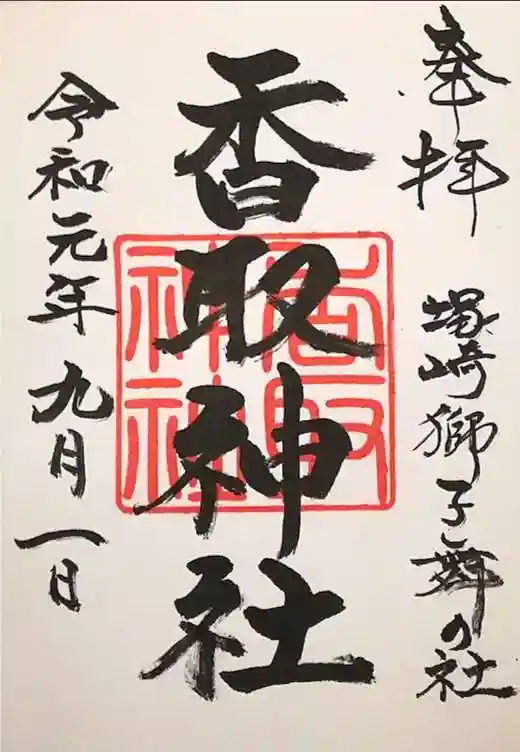 奉拝 塚崎獅子舞の社
香取神社
令和元年九月一日
香取
神社